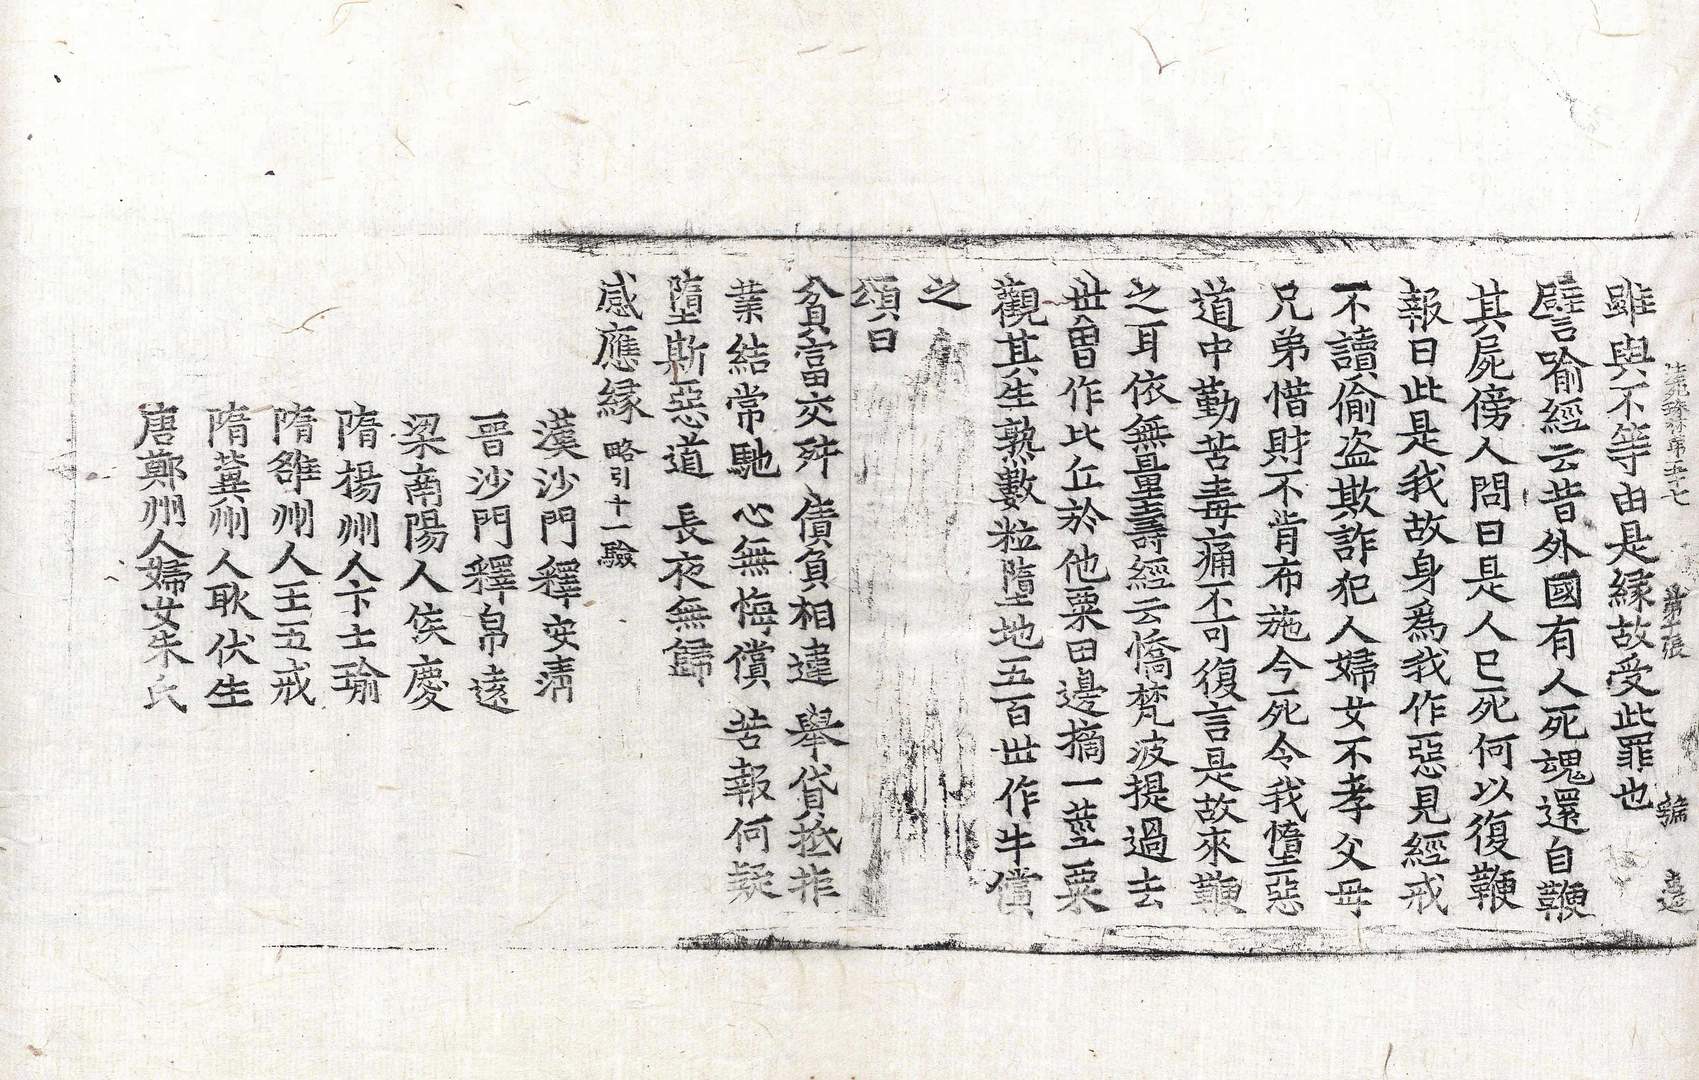 法苑珠林第五十七 第 張 𮢶
雖與不等由是緣故受此罪也
譬喻經云昔外國有人死魂還自鞭
其屍傍人問曰是人已死何以復鞭
報曰此是我故身爲我作惡見經戒
不讀偷盗欺詐犯人婦女不孝父母
兄弟惜財不肯布施今死令我墮惡
道中勤苦毒痛不可復言是故來鞭
之耳依無量壽經云憍梵波提過去
世曾作比丘於他粟田邊摘一莖粟
觀其生熟數粒墮地五百世作牛償
之
頌曰
貧富交殊 債負相違 舉貸抵拒
業結常馳 心無悔償 苦報何疑
墮斯惡道 長夜無歸
感應緣 略引十一驗
漢沙門釋安清
晉沙門釋帛遠
梁南陽人侯慶
隋揚州人卞士瑜
隋雒州人王五戒
隋蓂州人耿伏生
唐鄭州人婦女朱氏